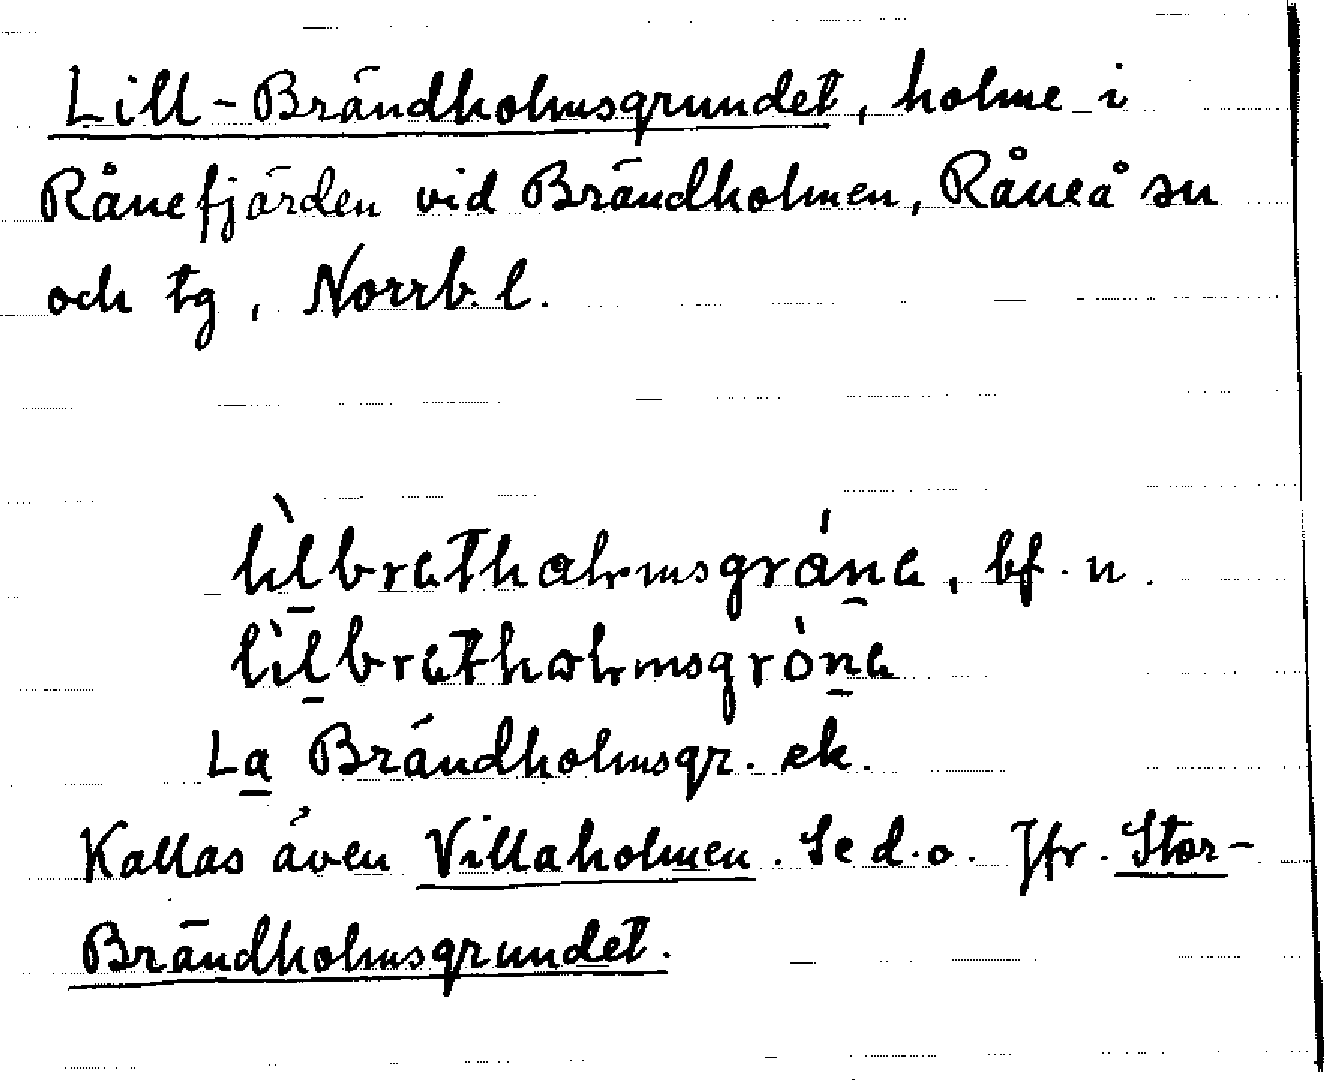 Lill-Brändholmsgrundet, holme i
Rånefjärden vid Brändholmen, Råneå sn
och tg, Norrb. l.
lìl̲brathalmsgrán̲a, bf. n.
lìl̲bratholmsgròn̲a
La Brändholmsgr. ek.
Kallas även Villaholmen. Se d.o. Jfr. Stor-
Brändholmsgrundet.